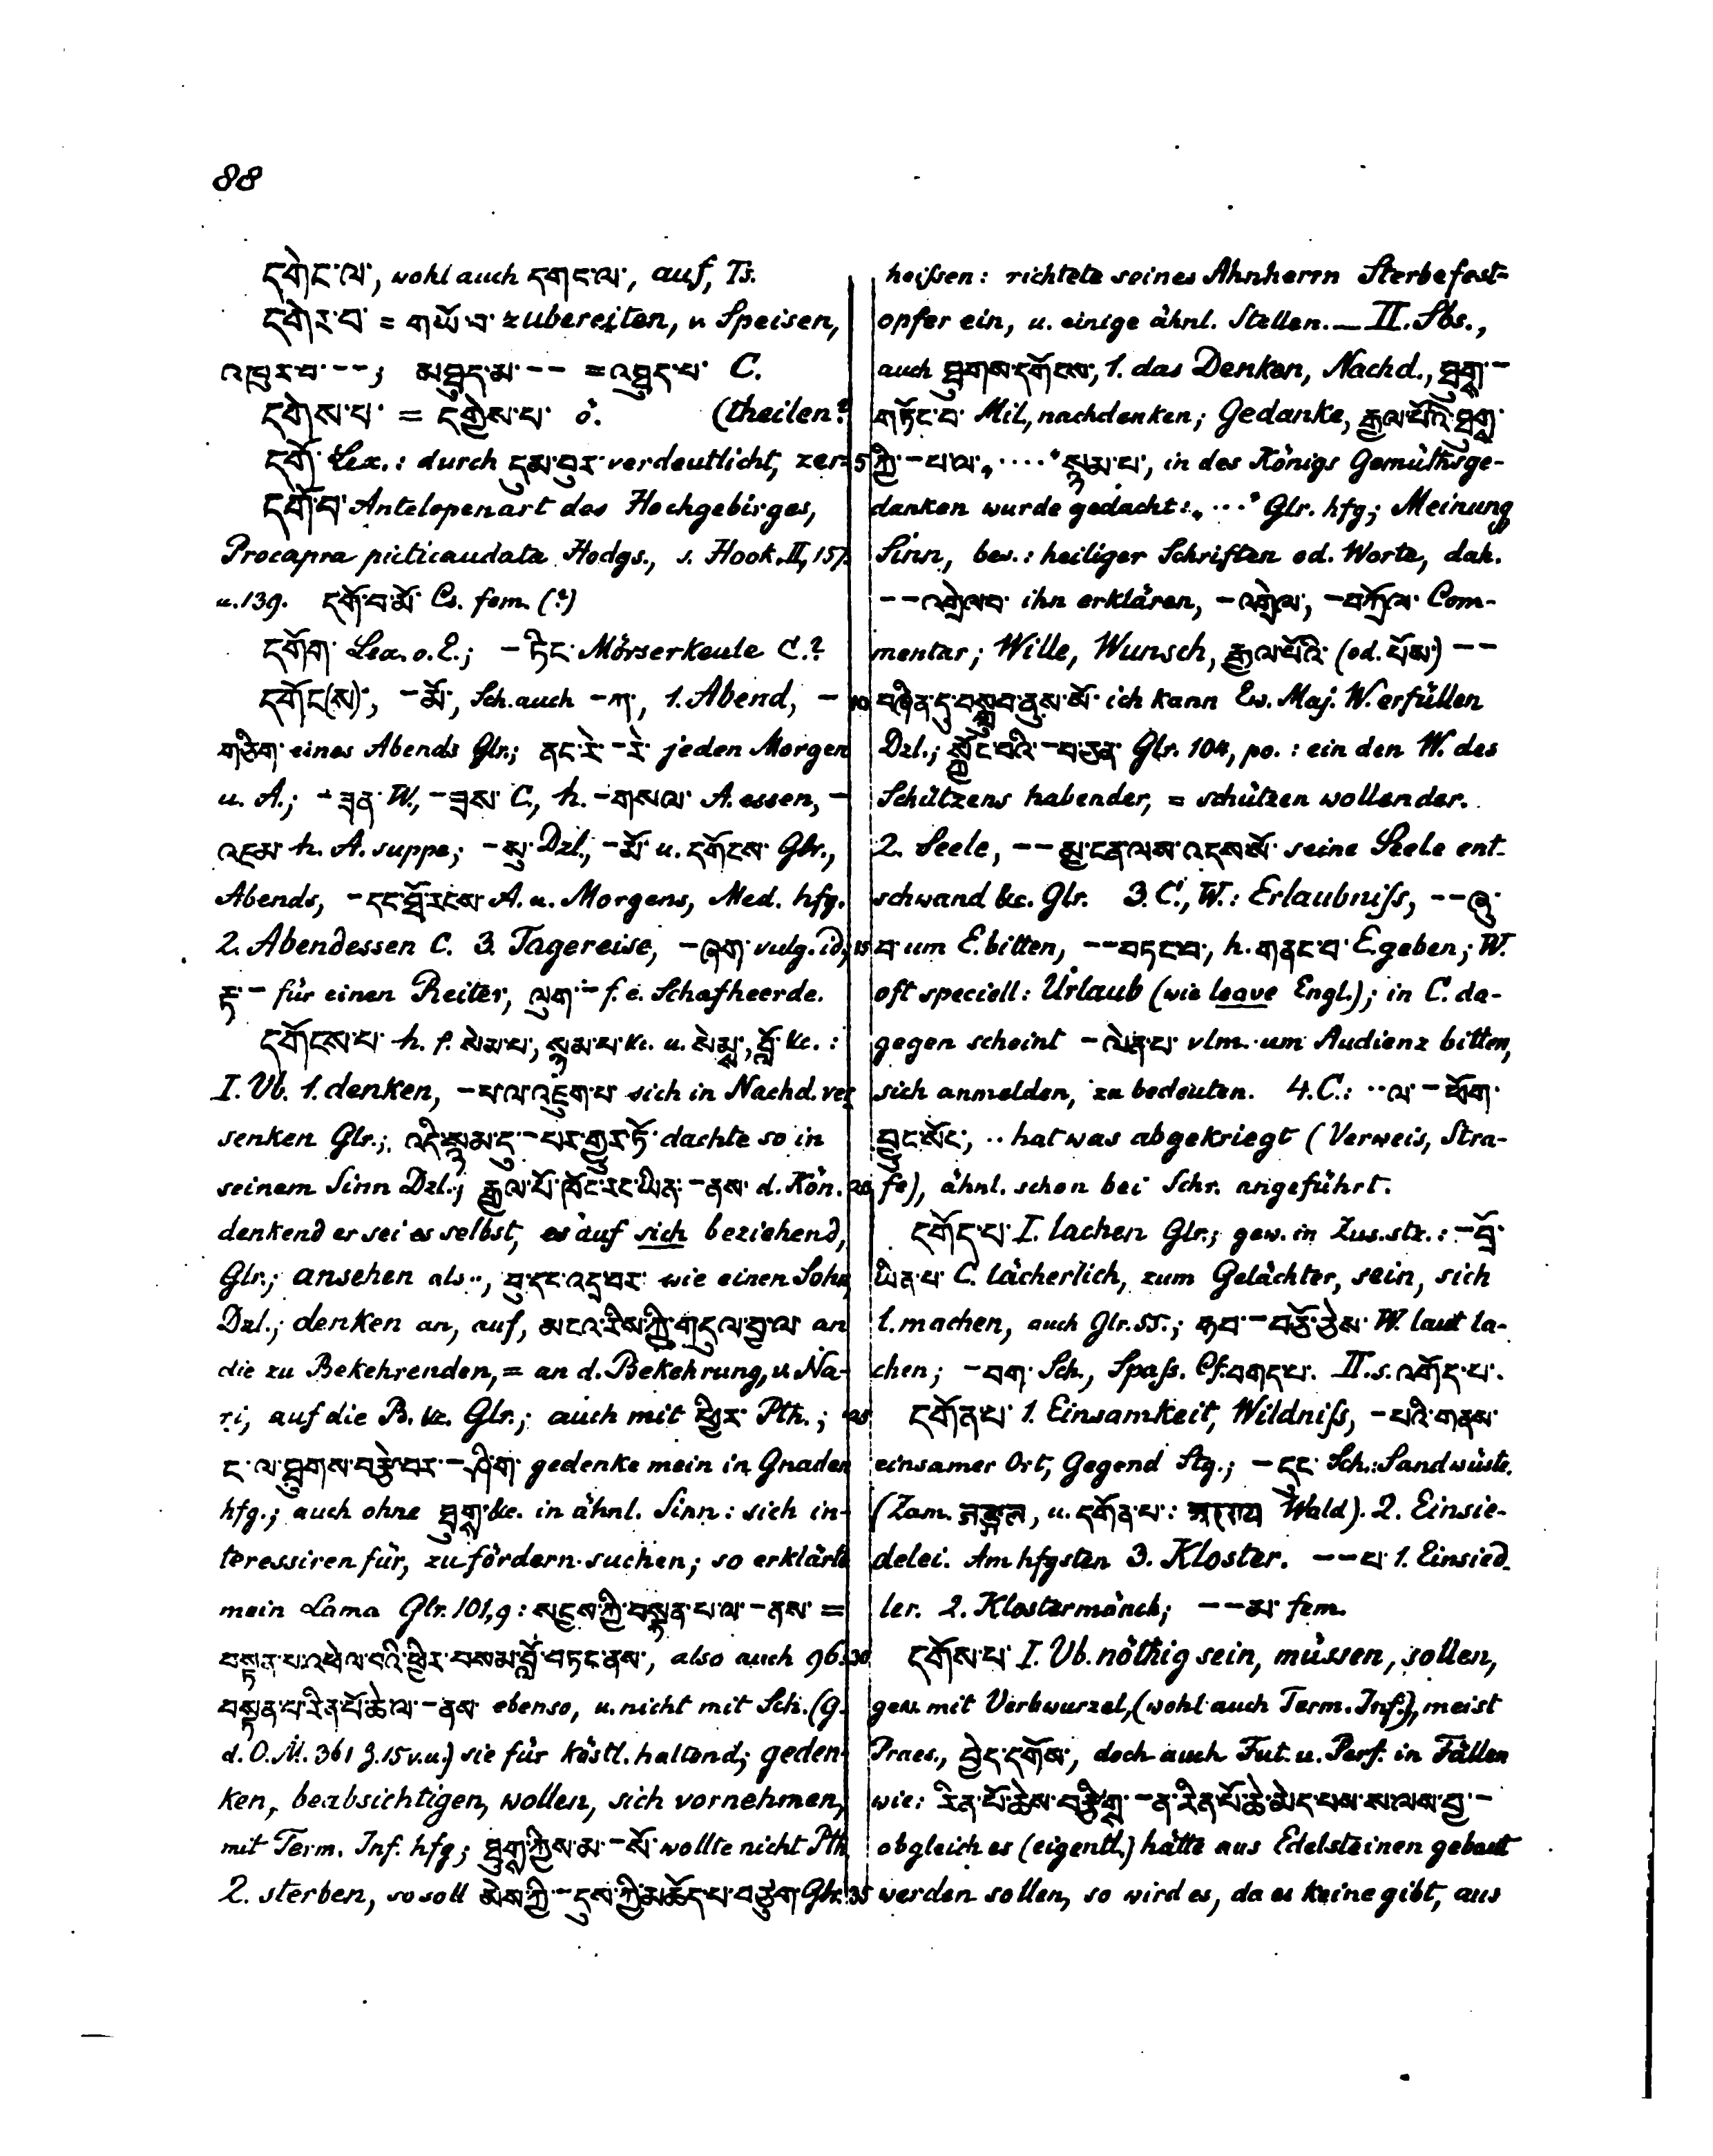 88
དགེང་ལ་, wohl auch དགང་ལ་, auf, Ts.
དགེར་བ་ = གཡོ་བ་ zubereiten, v. Speisen,
འཁྲུར་བ་ --; མཐུད་མ་ -- = འཐུད་པ་ C.
དགེས་པ་ = དགྱེས་པ་ ö. (theilen?
དགོ་ Lex.: durch དུམ་བུར་ verdeutlicht, zer-
དགོ་བ་ Antelopenart des Hochgebirges,
Procapra picticaudata Hodgs., s. Hook. II, 157.
u. 139. དགོ་བ་མོ་ Cs. fem. (?)
དགོག་ Lex. o. E.; -ཏིང་ Mörserkeule C.?
དགོང(ས)་, -མོ་, Sch. auch -ཀ་, 1. Abend, -
གཅིག་ eines Abends Glr.; ནང་རེ་ -རེ་ jeden Morgen
u. A.; -ཟན་ W., -ཟས་ C., h. -གསལ་ A. essen, -
འཇམ་ h. A. suppe; -སུ་ Dzl., -མོ་ u. དགོངས་ Glr.,
Abends, -དང་ཐོརངས་ A. u. Morgens, Med. hfg.
2. Abendessen C. 3. Tagereise, -ཞག་ vulg. id.,
རྟ་ - für einen Reiter, ལུག་ - f. e. Schafheerde.
དགོངས་པ་ h. f. སེམ་པ་, སྙམ་པ་ &c. u. སེམས་, བློ་ &c.:
I. Vb. 1. denken, -པ་ལ་འཇུག་པ་ sich in Nachd. ver-
senken Glr.; འདི་སྙམ་དུ་ -པར་གྱུར་ཏོ་ dachte so in
seinem Sinn Dzl.; རྒྱལ་པོ་ཁོང་རང་ཡིན་ -ནས་ d. Kön.
denkend er sei es selbst, es auf sich beziehend,
Glr.; ansehen als .., བུ་དང་འདྲ་བར་ wie einen Sohn
Dzl.; denken an, auf, མངའ་རིས་ཀྱི་གདུལ་བྱ་ལ་ an
die zu Bekehrenden, = an d. Bekehrung, v. Na-
ri, auf die B. &c. Glr.; auch mit ཕྱིར་ Pth.;
ང་ལ་ཐུགས་བརྩེ་བར་ -ཤིག་ gedenke mein in Gnaden
hfg.; auch ohne ཐུགས་ &c. in ähnl. Sinn: sich in-
teressiren für, zu fördern suchen; so erklärte
mein Lama Glr. 101,9: སངས་ཀྱི་བསྟན་པ་ལ་ -ནས་ =
བསྟན་པ་འཕེལ་བའི་ཕྱིར་བསམ་བློ་བཏང་ནས་, also auch 96.
བསྟན་པ་རིན་པོ་ཆེ་ལ་ -ནས་ ebenso, u. nicht mit Sch. (g.
d. O. M. 361 Z. 15 v. u.) sie für köstl. haltend; geden-
ken, beabsichtigen, wollen, sich vornehmen,
mit Term. Inf. hfg; ཐུགས་ཀྱིས་མ་ -སོ་ wollte nicht Pth.
2. sterben, so soll མེས་ཀྱི་ -དུས་ཀྱི་མཆོད་པ་བཙུག་ Glr.
heißen: richtete seines Ahnherrn Sterbefest-
opfer ein, u. einige ähnl. Stellen. — II. Sbs.,
auch ཐུགས་དགོངས་, 1. das Denken, Nachd., ཐུགས་ -
གཏོང་བ་ Mil, nachdenken; Gedanke, རྒྱལ་པོའི་ཐུགས་
5 ཀྱི་ -པ་ལ་ „....“ སྙམ་པ་, in des Königs Gemüthsge-
danken wurde gedacht: „...“ Glr. hfg; Meinung
Sinn, bes.: heiliger Schriften od. Worte, dah.
--འགྲེལབ་ ihn erklären, -འགྲེལ་, -བཀྲོལ་ Com-
mentar; Wille, Wunsch, རྒྱལ་པོའི་ (od. པོས་) --
10 བཞིན་དུ་བསྒྲུབ་ནུས་སོ་ ich kann Ew. Maj. W. erfüllen
Dzl.; སྐྱོང་བའི་ -བ་ཅན་ Glr. 104, po.: ein den W. des
Schützens habender, = schützen wollender.
2. Seele, --མྱ་ངན་ལས་འདས་སོ་ seine Seele ent-
schwand &c. Glr. 3. C., W.: Erlaubniß, --ཞུ་
15 བ་ um E. bitten, --བཏངབ་, h. གནང་བ་ E. geben; W.
oft speciell: Urlaub (wie leave Engl.); in C. da-
gegen scheint -ལེན་པ་ vlm. um Audienz bitten,
sich anmelden, zu bedeuten. 4. C.: ..ལ་ -ཕོག་
བྱུང་སོང་, .. hat was abgekriegt (Verweis, Stra-
20 fe), ähnl. schon bei Schr. angeführt.
དགོད་པ་ I. lachen Glr.; gew. in Zus. stz.: -བྲོ་
ཡིན་པ་ C. lächerlich, zum Gelächter, sein, sich
l. machen, auch Glr. 55.; -བཅོ་ཅེས་ W. laut la-
chen; -བག་ Sch., Spaß. Cf. བགད་པ་. II. s. འགོད་པ་.
25 དགོན་པ་ 1. Einsamkeit, Wildniß, -པའི་གནས་
einsamer Ort, Gegend Stg.; -དུང་ Sch.: Sandwüste.
(Zam. , u. དགོན་པ་: Wald). 2. Einsie-
delei. Am hfgsten 3. Kloster. --པ་ 1. Einsied-
ler. 2. Klostermönch; --མ་ fem.
30 དགོས་པ་ I. Vb. nöthig sein, müssen, sollen,
gew. mit Verbwurzel, (wohl auch Term. Inf.), meist
Praes., བྱེད་དགོས་, doch auch Fut. u. Perf. in Fällen
wie: རིན་པོ་ཆེས་བརྩིགས་ -ན་རིན་པོ་ཆེ་མེད་པས་ས་ལས་བྱ་ -
obgleich es (eigentl.) hätte aus Edelsteinen gebaut
35 werden sollen, so wird es, da es keine gibt, aus